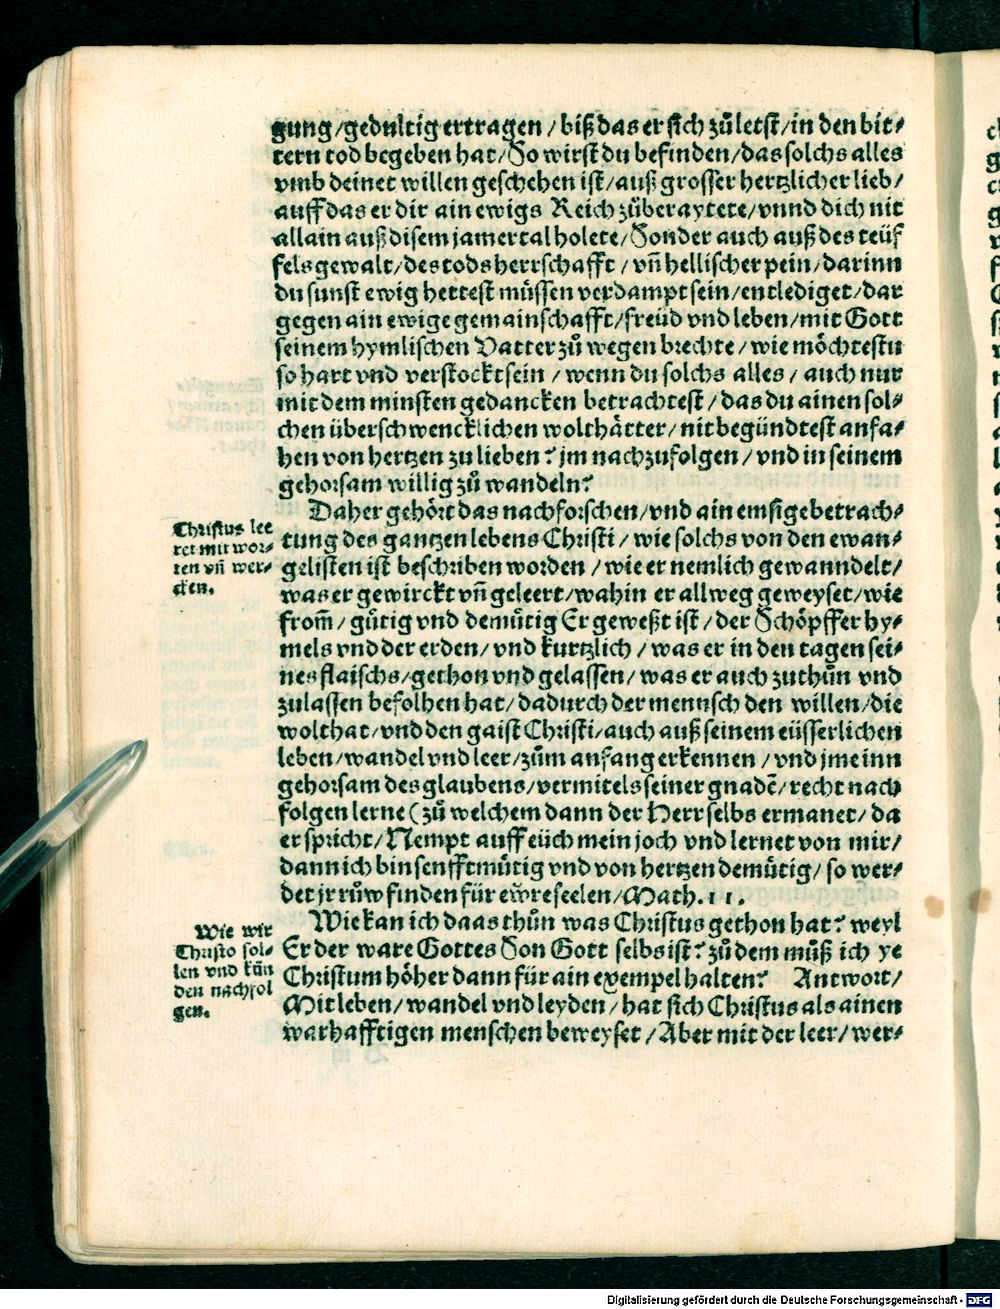 gung/gedultig ertragen/biß das er sich zů letst/in den bit⸗
tern tod begeben hat/So wirst du befinden/das solchs alles
vmb deinet willen geschehen ist/auß grosser hertzlicher lieb/
auff das er dir ain ewigs Reich zůberaytete/vnnd dich nit
allain auß disem jamertal holete/Sonder auch auß des teüf
fels gewalt/des tods herrschafft/vñ hellischer pein/darinn
du sunst ewig hettest müssen verdampt sein/entlediget/dar
gegen ain ewige gemainschafft/freüd vnd leben/mit Gott
seinem hymlischen Vatter zů wegen brechte/wie möchtestu
so hart vnd verstockt sein/wenn du solchs alles/auch nur
mit dem minsten gedancken betrachtest/das du ainen sol⸗
chen überschwencklichen wolthätter/nit begündtest anfa⸗
hen von hertzen zu lieben? jm nachzufolgen/vnd in seinem
gehorsam willig zů wandeln?
Daher gehört das nachforschen/vnd ain emsige betrach⸗
tung des gantzen lebens Christi/wie solchs von den ewan⸗
gelisten ist beschriben worden/wie er nemlich gewanndelt/
was er gewirckt vñ geleert/wahin er allweg geweyset/wie
from̄/gütig vnd demütig Er geweßt ist/der Schöpffer hy⸗
mels vnd der erden/vnd kurtzlich/was er in den tagen sei⸗
nes flaischs/gethon vnd gelassen/was er auch zuthůn vnd
zulassen befolhen hat/dadurch der mennsch den willen/die
wolthat/vnd den gaist Christi/auch auß seinem eüsserlichen
leben/wandel vnd leer/zům anfang erkennen/vnd jme inn
gehorsam des glaubens/vermitels seiner gnadẽ/recht nach
folgen lerne (zů welchem dann der Herr selbs ermanet/da
er spricht/Nempt auff eüch mein joch vnd lernet von mir/
dann ich bin senfftmütig vnd von hertzen demütig/so wer⸗
det jr růw finden für ewre seelen/Math.11.
Christus lee
ret mit wor⸗
ten vñ wer⸗
cken.
Wie kan ich daas thůn was Christus gethon hat? weyl
Er der ware Gottes Son Gott selbs ist? zů dem můß ich ye
Christum höher dann für ain exempel halten? Antwort/
Mit leben/wandel vnd leyden/hat sich Christus als ainen
warhafftigen menschen beweyset/Aber mit der leer/wer⸗
Wie wir
Christo sol⸗
len vnd kün
den nachfol
gen.
Digitalisierung gefördert durch die Deutsche Forschungsgemeinschaft - DFG